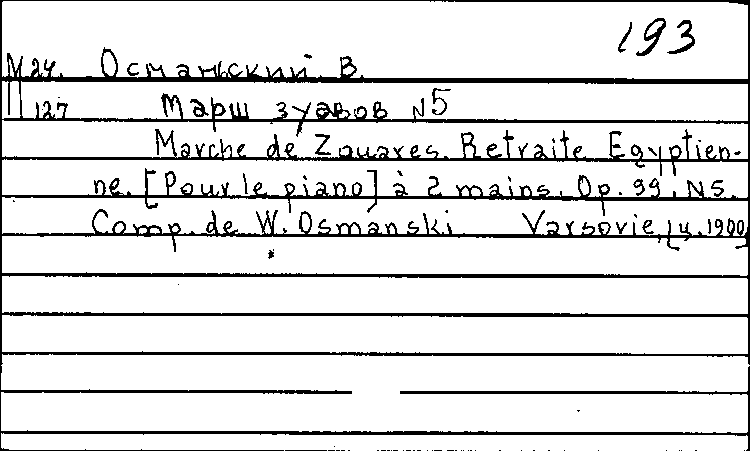 193
М24. Османьский В.
П127 Марш зуавов N5
Marche de Zouaves. Retraite Egyptien-
ne. [Pour le piano] à 2 mains. Op. 99. N5.
Comp. de W. Osmański Varsovie, [ц. 1900]